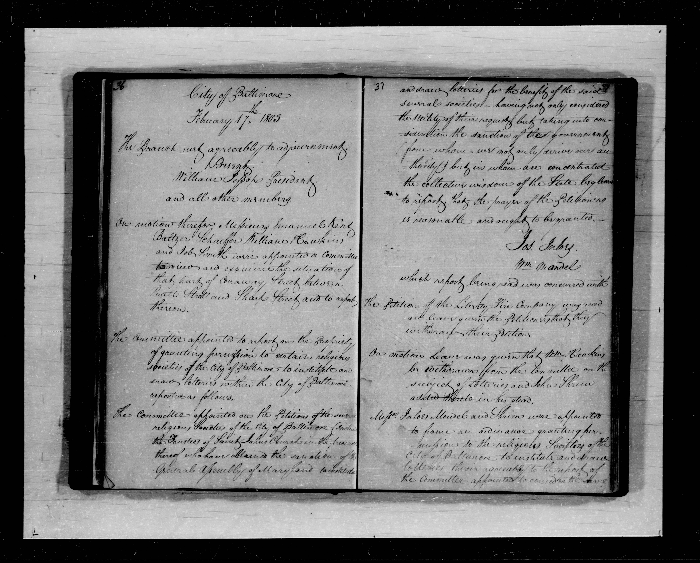 36
City of Baltimore
February 17th 1803
The Branch met agreeably to adjournment
Present
William Jessop President
and all other members
On motion therefore Messieurs Emanuel Kent
Baltzer Schaeffer William Hawkins
and Job Smith were appointed a Committee
to view and examine the situation of
that part of Conway Street between
Street and Sharp Street and to report
thereon.
The Committee appointed to report on the propriety
of granting permission to certain religious
societies of the City of Baltimore to institute and
draw lotteries within the City of Baltimore
reported as follows.
The Committee appointed on the Petitions of the
religious Societies of the City of Baltimore
the Trustees of Church
who have obtained the sanction of the
General Assembly of Maryland to institute
37
and draw lotteries for the benefit of the said
several societies having not only considered
the utility of their request but taking into con-
sideration the sanction of the government
from whom we not only derive our au-
thority but in whom are concentrated
the collective wisdom of the State beg leave
to report that the prayer of the Petitioners
is reasonable and ought to be granted.
Jas
Wm Mandel
which report being read was concurred with
The Petition of the Liberty Fire Company was read
and leave given the Petitioners that they
withdraw their Petition
On motion leave was given that Wm Hawkins
be withdrawn from the Committee on the
subject of Lotteries and John Shrim
added thereto in his stead.
Messrs Mandel and Shrim were appointed
to frame an ordinance granting per-
mission to the religious Societies of the
City of Baltimore to institute and draw
Lotteries therein agreeably to the report of
the Committee appointed to consider the same